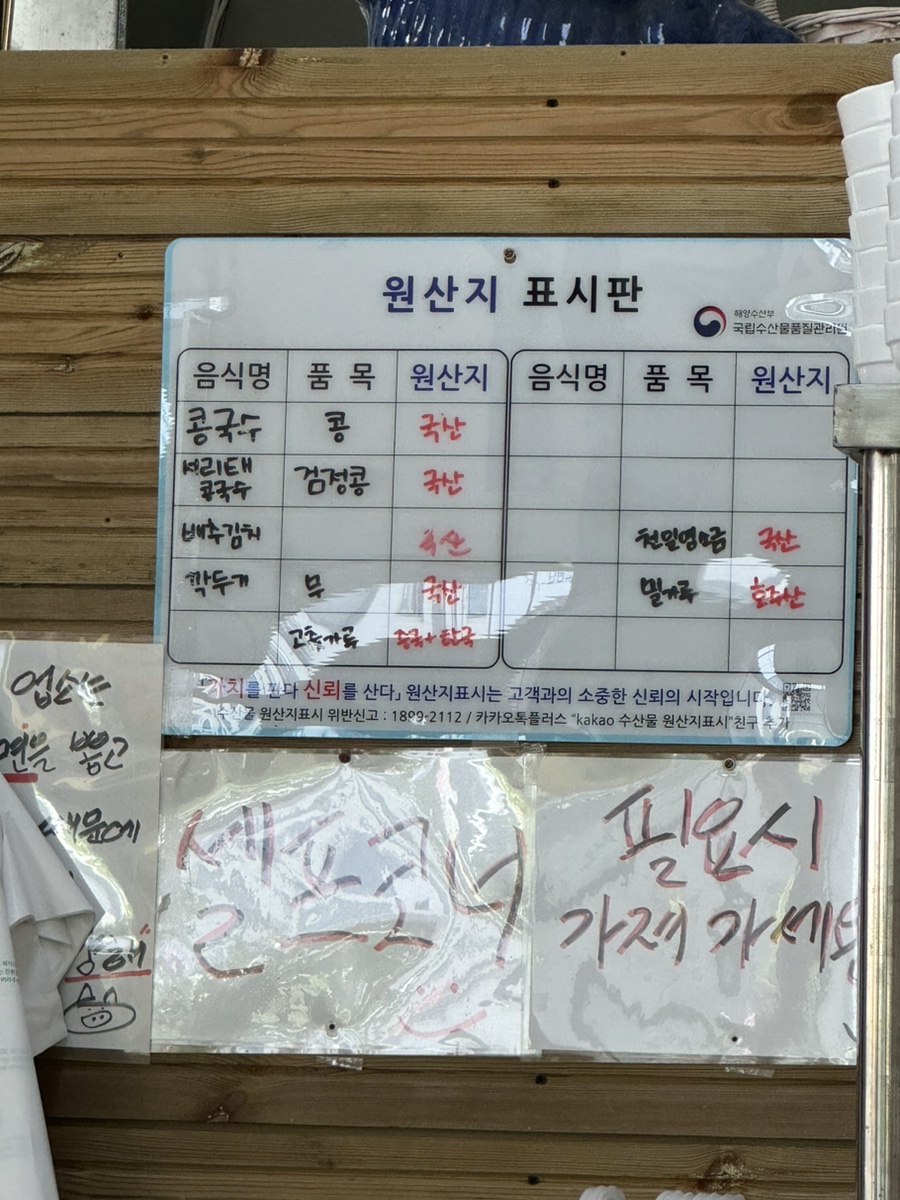 원산지 표시판
해양수산부
국립수산물품질관리원
음식명 품 목 원산지 음식명 품 목 원산지
콩국수 콩 국산
서리태 콩국수 검정콩 국산
배추김치 국산 천일염소금 국산
깍두기 무 국산 밀가루 호주산
고춧가루 중국+한국
「가치를 판다 신뢰를 산다」 원산지표시는 고객과의 소중한 신뢰의 시작입니다.
수산물 원산지표시 위반신고 : 1899-2112 / 카카오톡플러스 "kakao 수산물 원산지표시"친구 추가
업소는
면을 뽑고
때문에
셀프코너
필요시
가져 가세